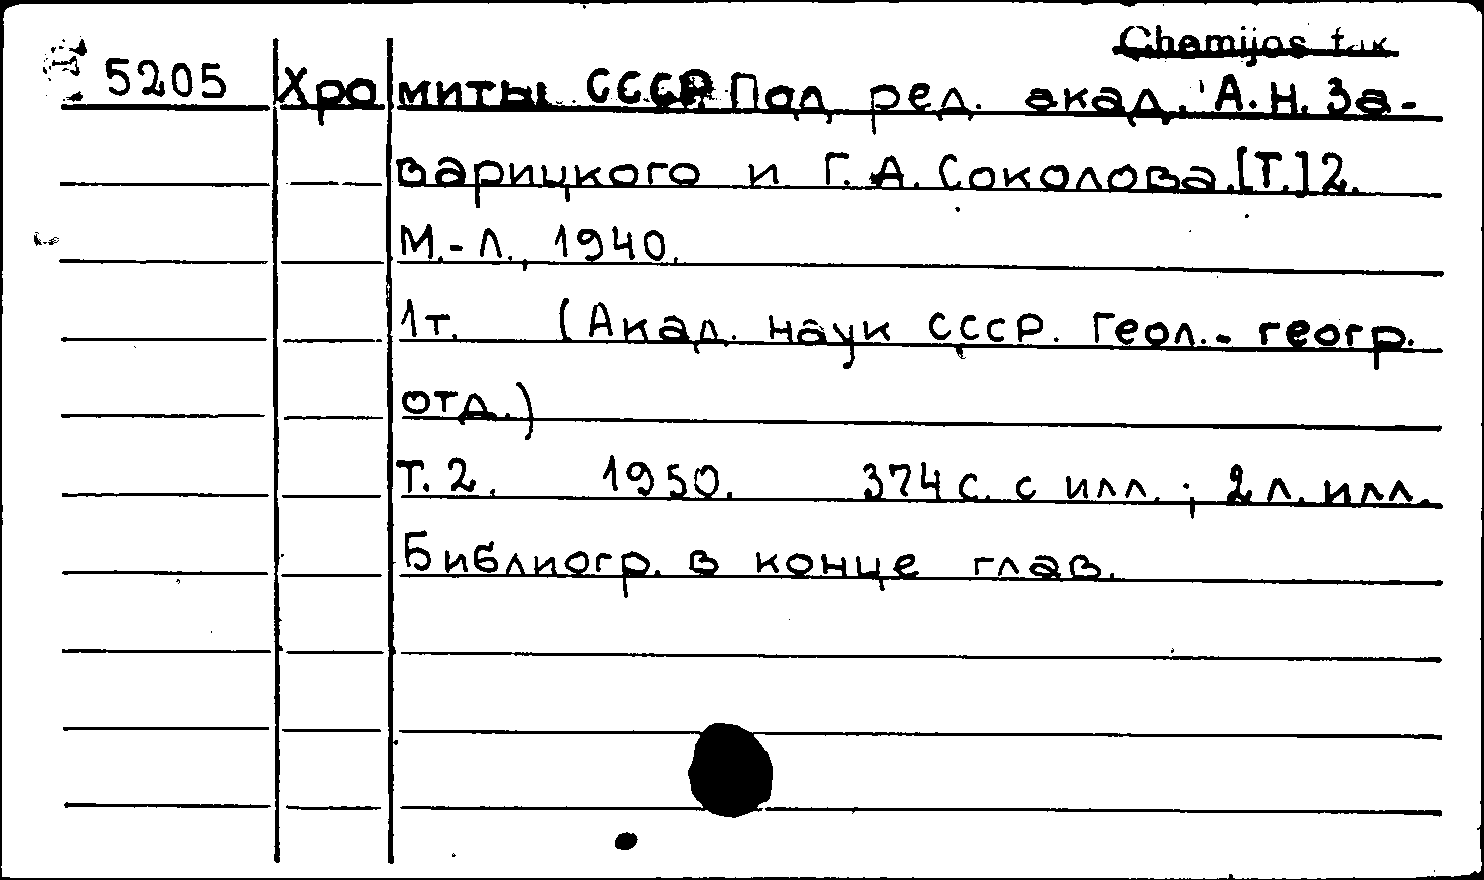 Chemijos fak.
5205 Хромиты СССР Под ред. акад. А.Н. За-
варицкого и Г.А. Соколова.[Т.]2.
М.-Л., 1940.
1т. (Акад. наук СССР. Геол.- геогр.
отд.)
Т. 2. 1950. 374 с. с илл.; 2 л. илл.
Библиогр. в конце глав.